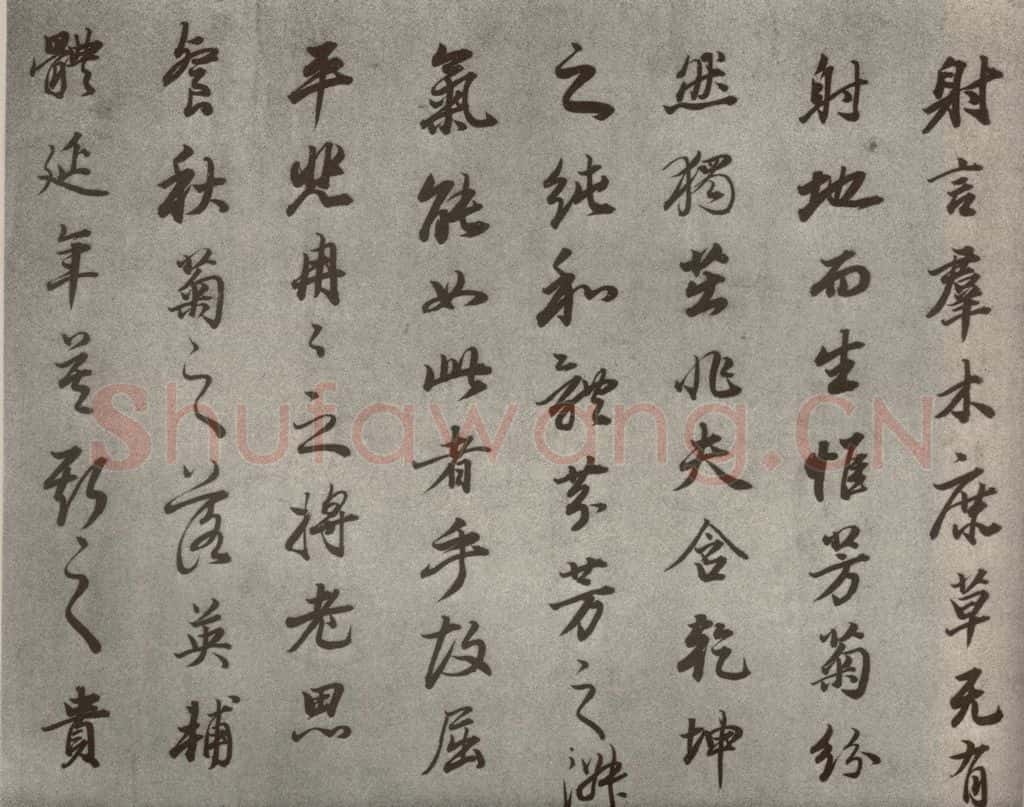 射言羣木庶草无有
射地而生惟芳菊紛
然獨茁非夫含乾坤
之純和體芬芳之淑
氣能如此者乎故屈
平悲冉〻之將老思
餐秋菊之落英輔
體延年莫斯之貴
Shufawang.CN